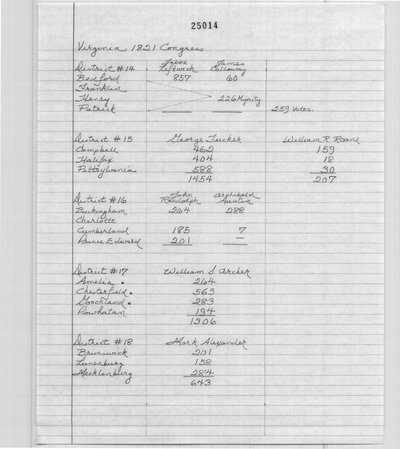 25014
Virginia 1821 Congress
District #14 Jabez Leftwich James Callaway
Bedford 837 60
Franklin
Henry 226 Majority
Patrick 259 Votes.
District #15 George Tucker William R Roane
Campbell 462 159
Halifax 404 18
Pittsylvania 588 30
1454 207
District #16 John Randolph Archibald Austin
Buckingham 264 288
Charlotte
Cumberland 185 7
Prince Edward 201 —
District #17 William S Archer
Amelia . 264
Chesterfield . 565
Goochland . 283
Powhatan 194
1306
District #18 Mark Alexander
Brunswick 201
Lunenburg 158
Mecklenburg 284
643